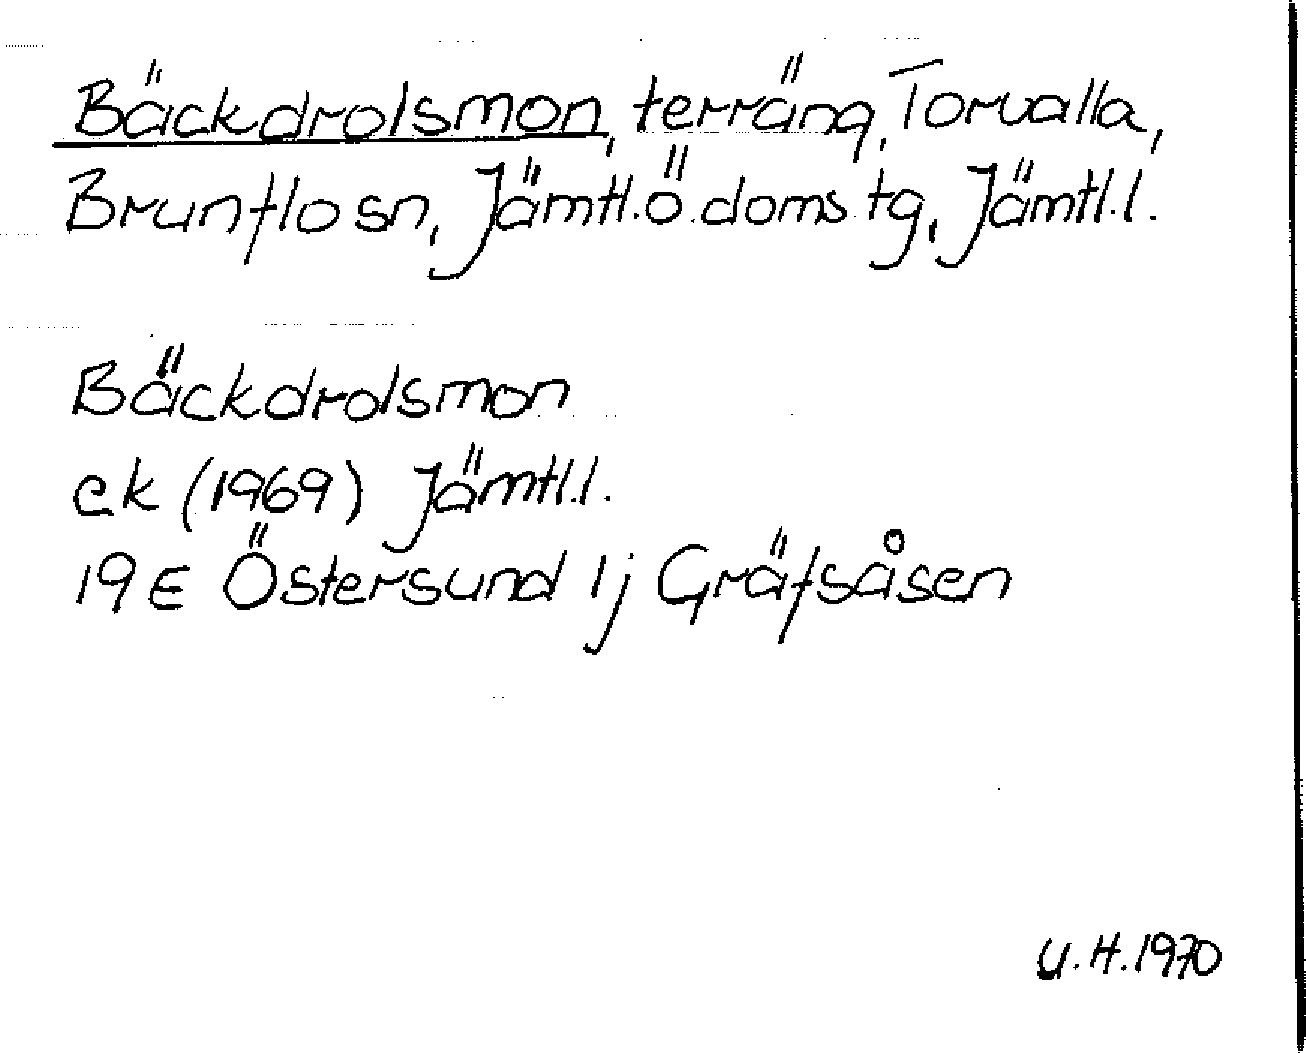 Bäckdrolsmon, terräng, Torvalla,
Brunflo sn, Jämtl.ö.doms.tg, Jämtl.l.
Bäckdrolsmon
ek (1969) Jämtl.l.
19E Östersund 1j Gräfsåsen
U.H.1970